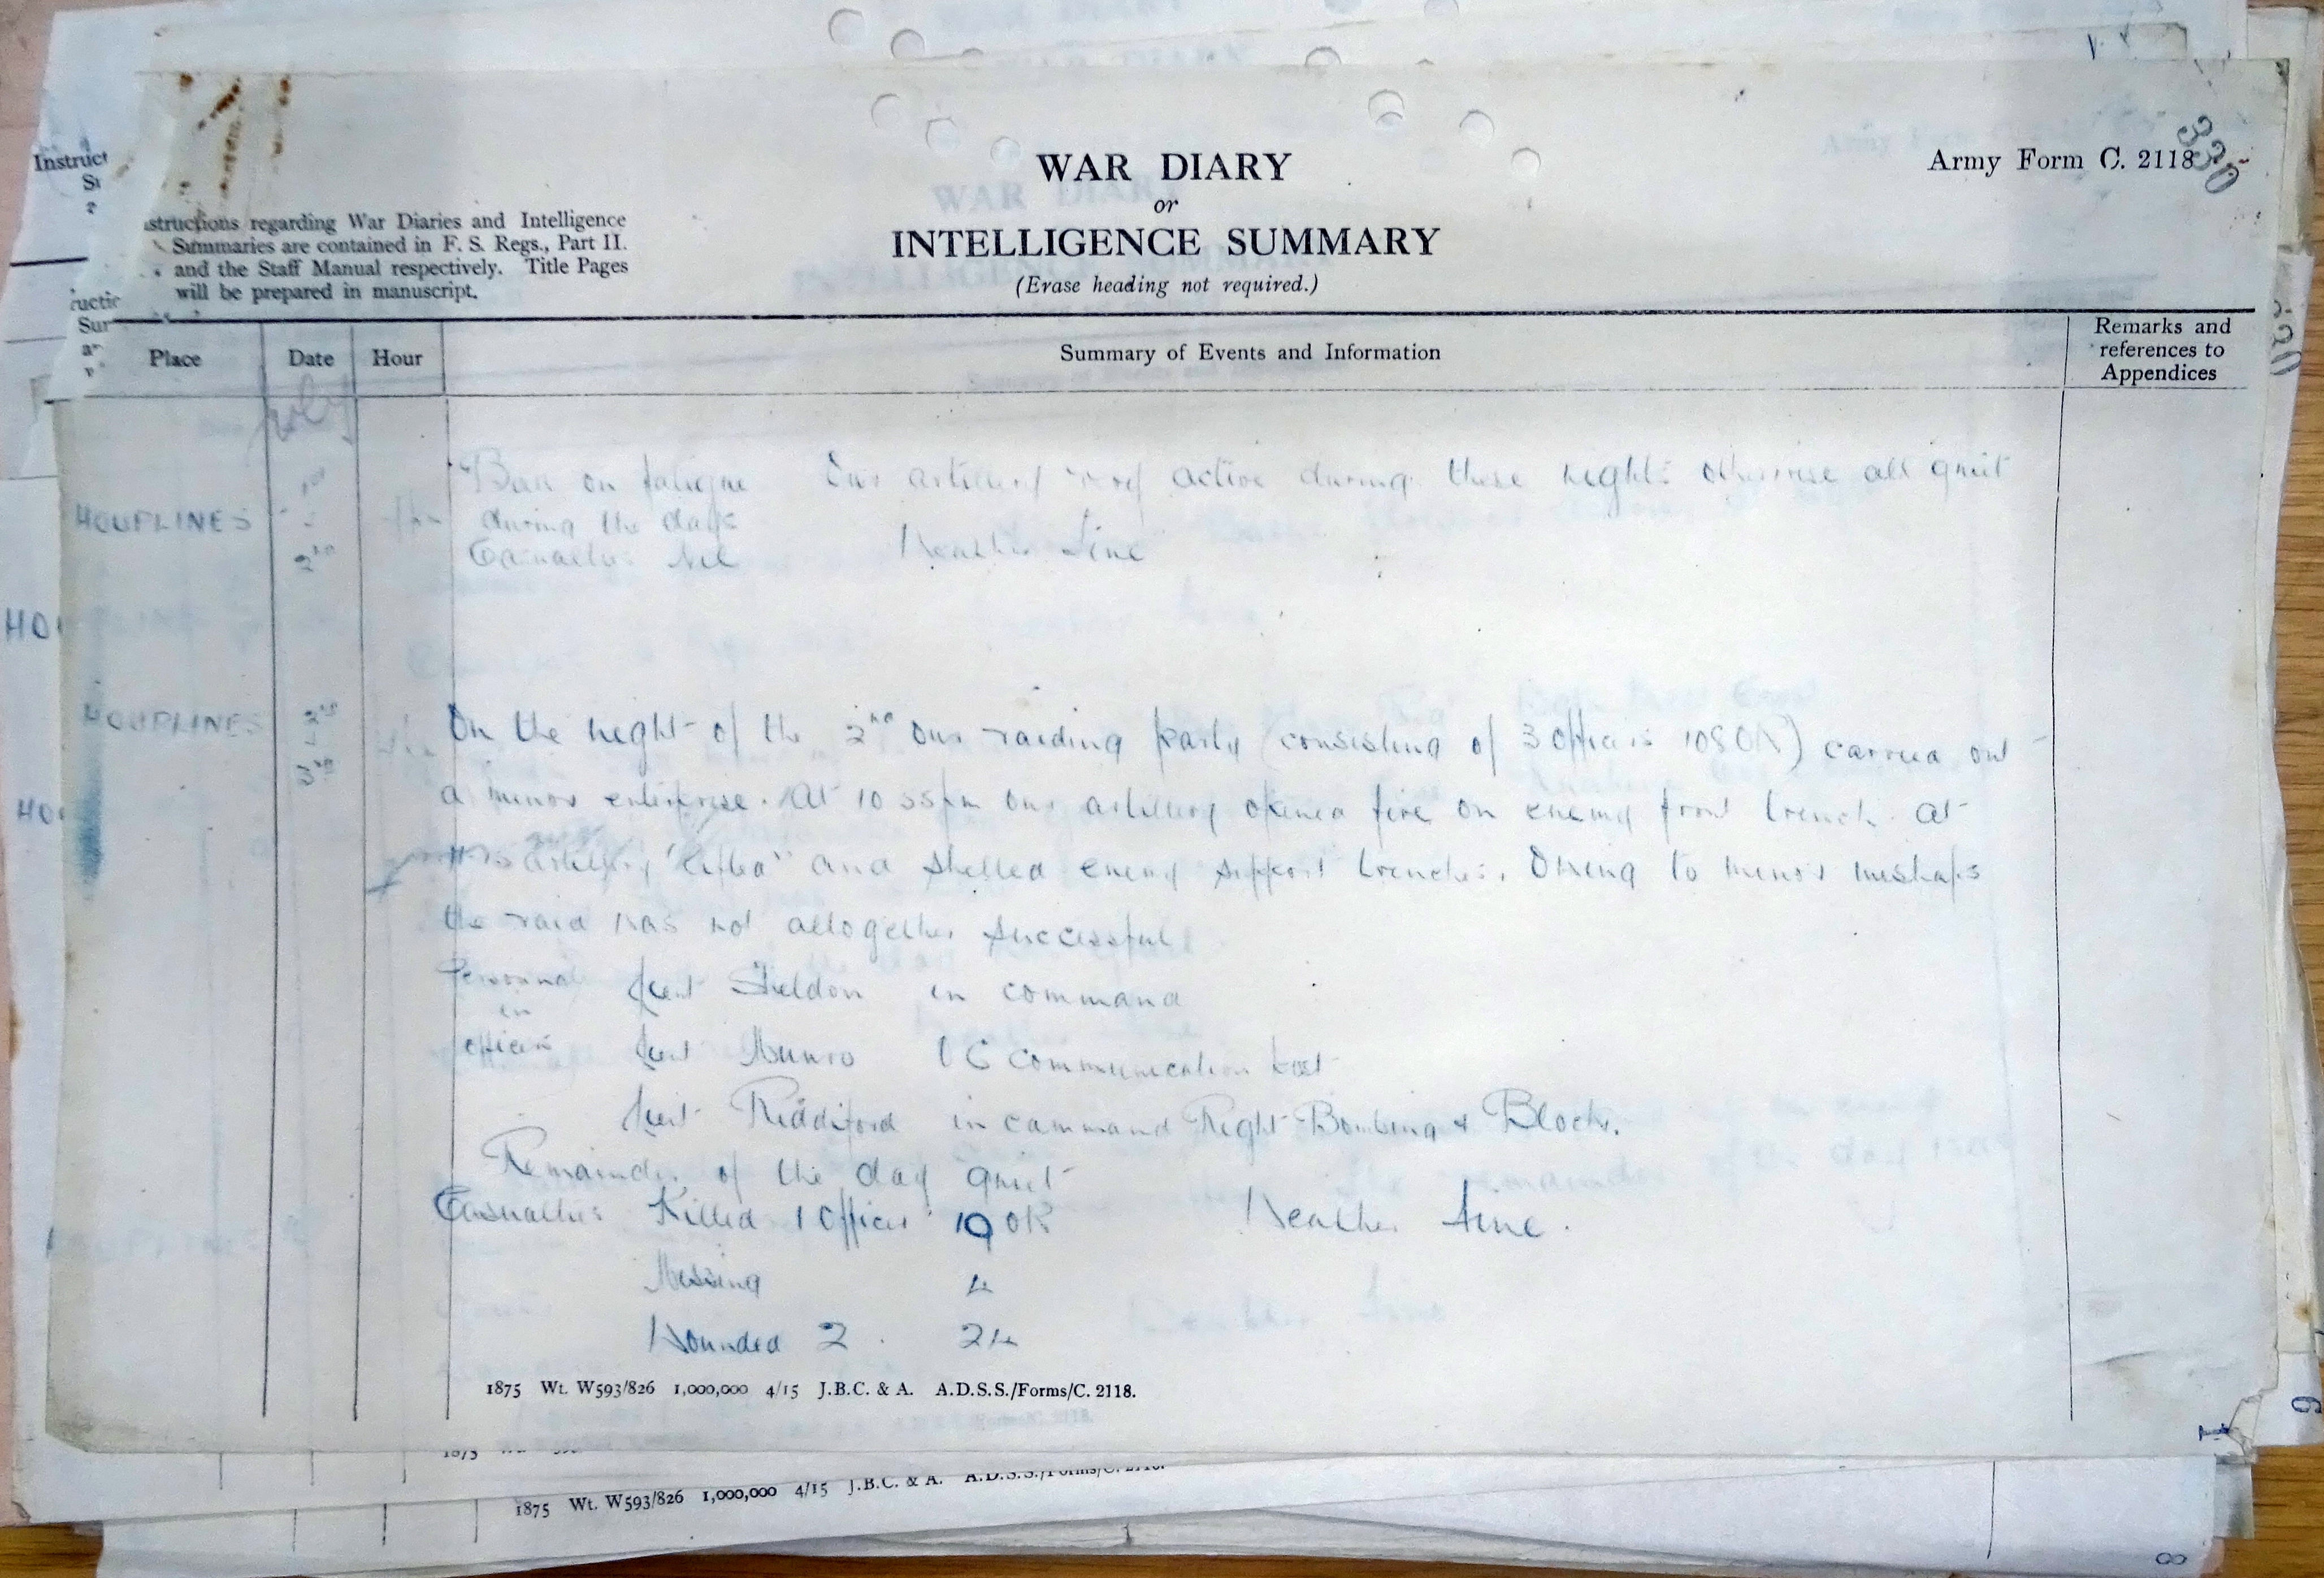 330
WAR DIARY
or
INTELLIGENCE SUMMARY
(Erase heading not required.)
Army Form C. 2118
structions regarding War Diaries and Intelligence
Summaries are contained in F. S. Regs., Part II.
and the Staff Manual respectively. Title Pages
will be prepared in manuscript.
Instruct
Place Date Hour Summary of Events and Information Remarks and references to Appendices
July
HOUPLINES 1st - 2nd
Batt on fatigue Our artillery active during these nights otherwise all quiet
during the days
Casualties Nil Weather Fine
HOUPLINES 2nd - 3rd
On the night of the 2nd our raiding party (consisting of 3 Officers 108 OR) carried out
a minor enterprise. At 10 55pm our artillery opened fire on enemy front trench. At
artillery "lifted" and shelled enemy support trenches. Owing to minor mishaps
the raid was not altogether successful
Personnel Lieut Sheldon in command
in
officers Lieut Munro I C communication
Lieut Riddiford in command Right Bombing & Block.
Remainder of the day quiet
Casualties Killed 1 Officer 10 OR Weather Fine.
Missing 4
Wounded 2 . 24
1875 Wt. W593/826 1,000,000 4/15 J.B.C. & A. A.D.S.S./Forms/C. 2118.
1875 Wt. W593/826 1,000,000 4/15 J.B.C. & A. A.D.S.S./Forms/C. 2118.